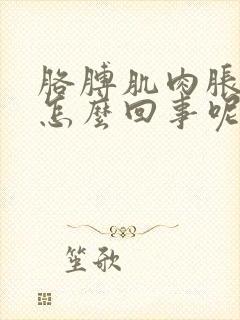 胳膊肌肉胀
怎么回事呢
笙歌